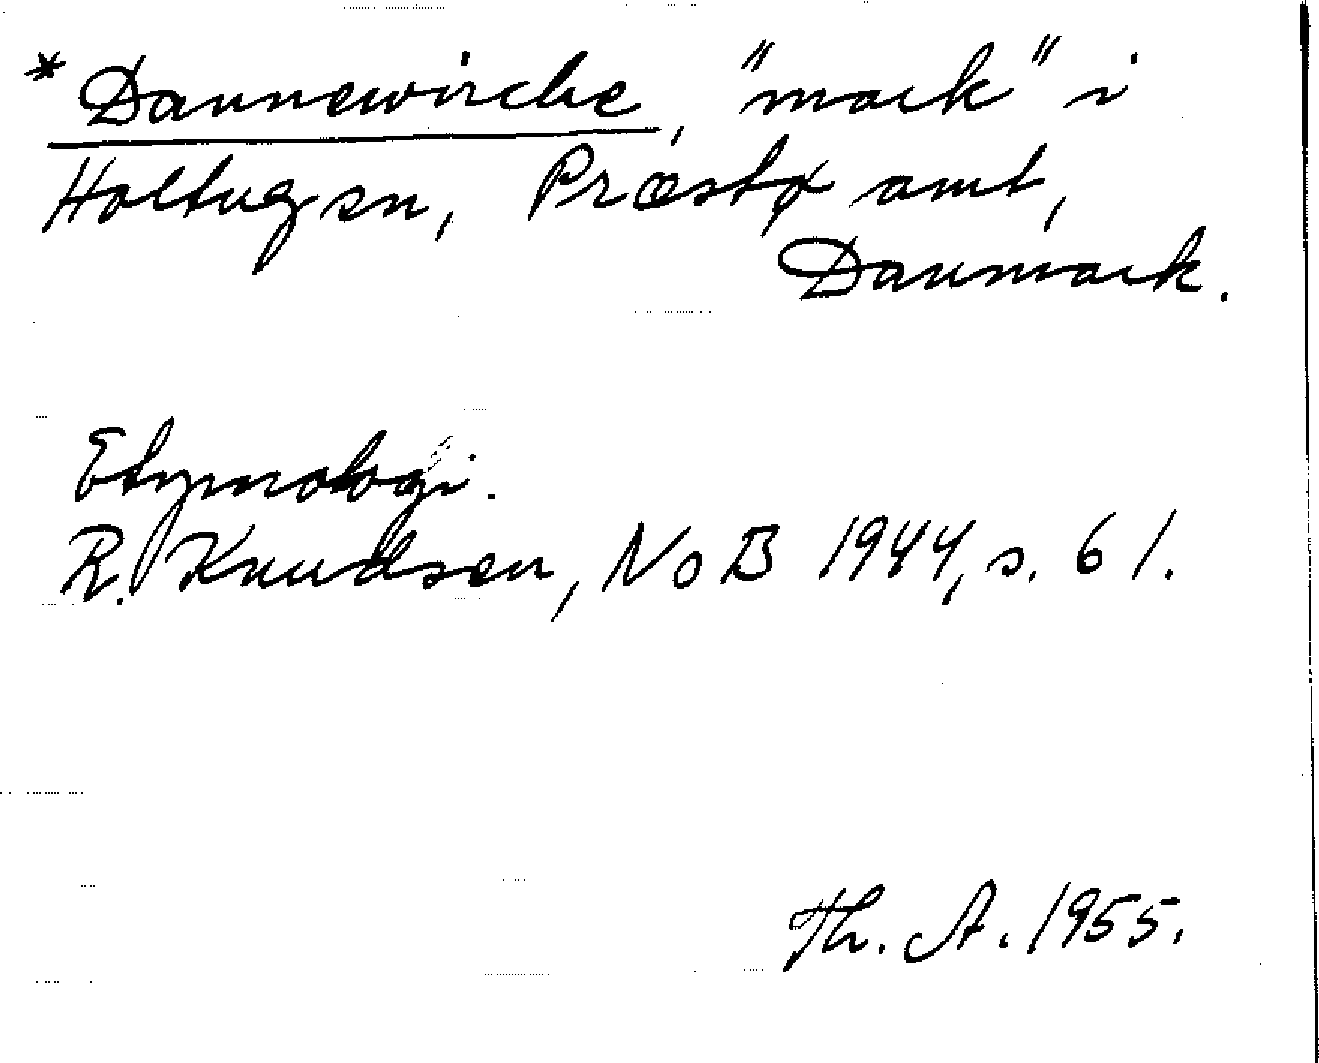 *Dannewirche, "mark" i
Holtugsn, Præstø amt,
Danmark.
Etymologi.
R. Knudsen, NoB 1944, s. 61.
Th. A. 1955.